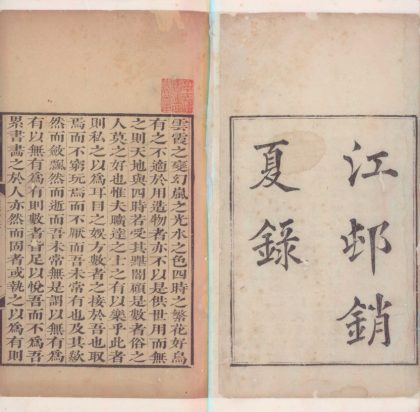 江邨銷
夏錄
雲霞之變幻嵐之光水之色四時之繁花好鳥
有之不適於用造物者亦不以是供世用而無
之則天地與四時若受其闇顧是數者俗之
人莫之好也惟夫曠達之士之有以樂乎此者
則私之以為耳目之娛方數者之接於吾也取
焉而不窮玩焉而不厭而吾未常有也及其歘
然而斂飄然而逝而吾未常無是謂以無有為
有以無有為有則數者皆足以悅吾而不為吾
累書畫之於人亦然而固者或執之以為有則